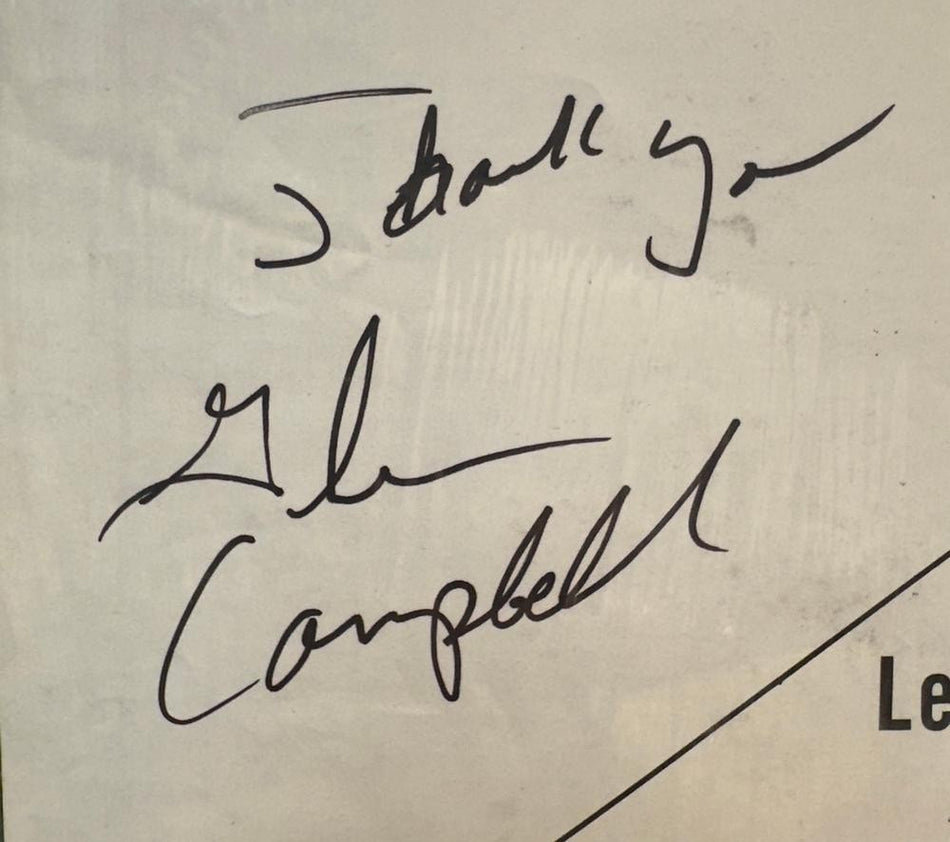 Thank you
Glen
Campbell
Le